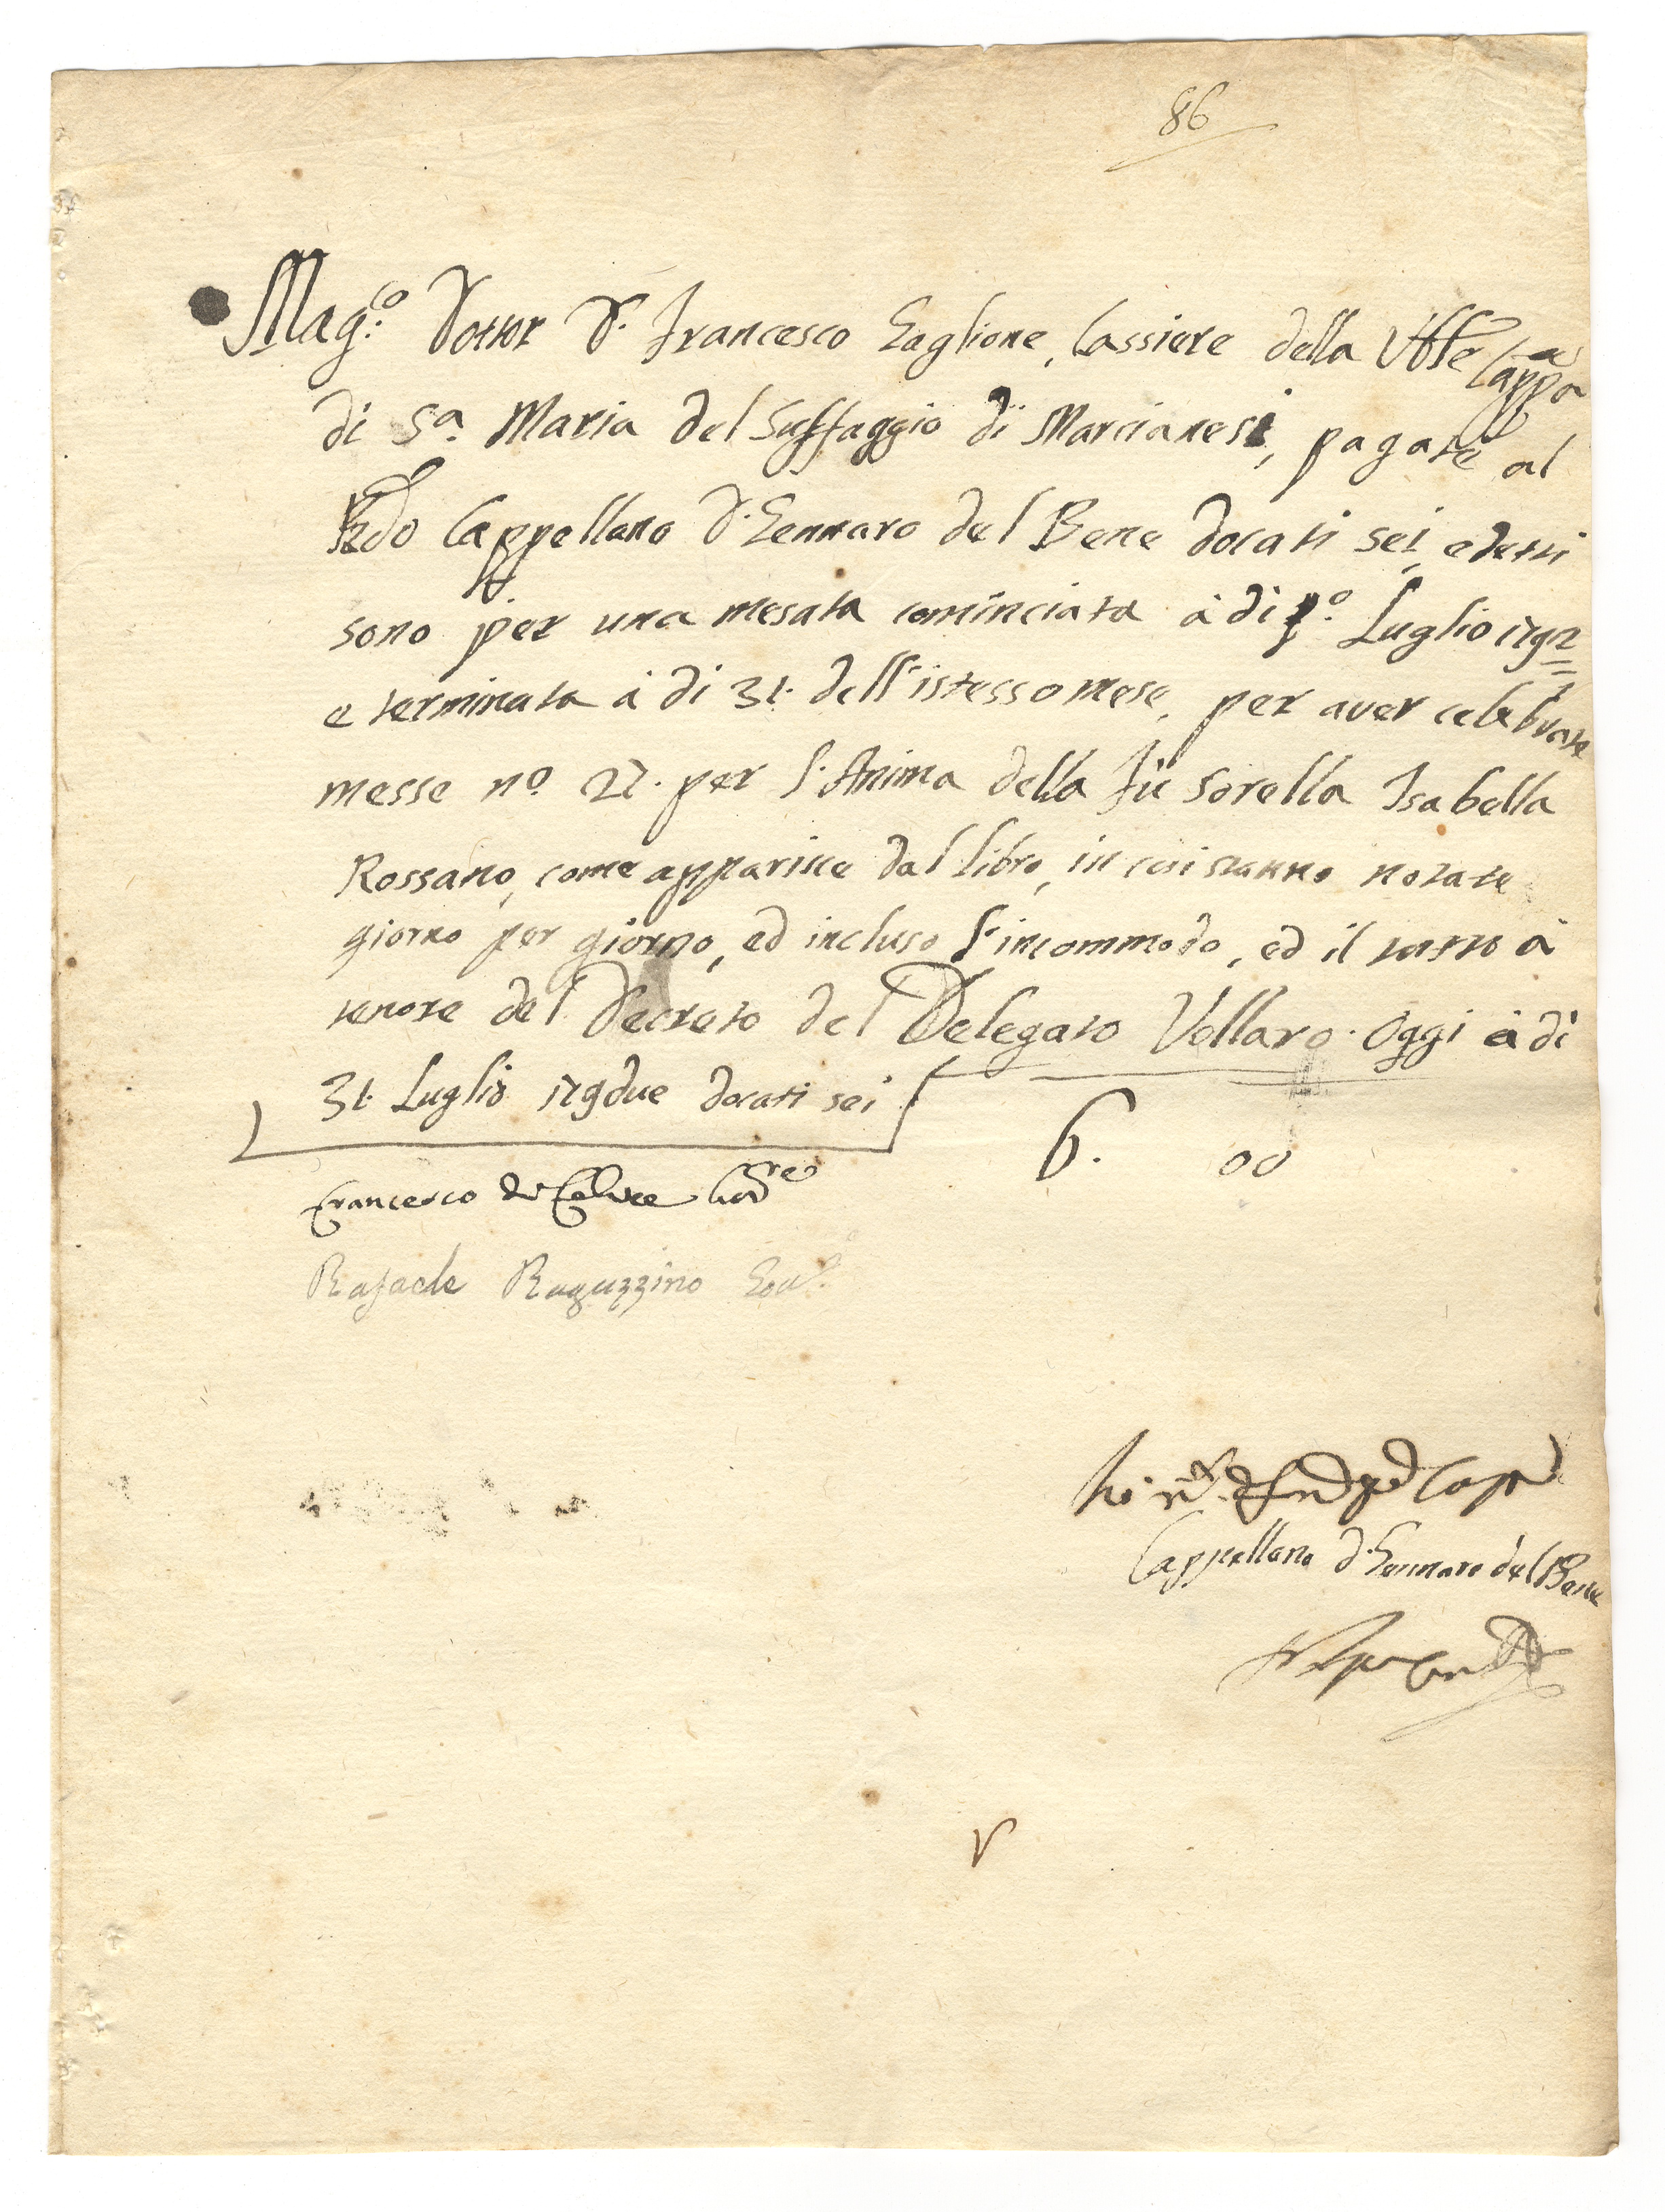 86
Mag:co Dottor D. Francesco Gaglione, Cassiere della Ven.le Capp.a
di S.a Maria del Suffaggio di Marcianesi, pagate al
R.do Cappellano D. Gennaro del Bene docati sei, e detti
sono per una mesata cominciata à di p.o Luglio 1792
e terminata à di 31. dell'istesso mese, per aver celebrate
messe n.o 27. per l'Anima della fù sorella Isabella
Rossano, come apparisce dal libro, in cui stanno notate
giorno per giorno, ed incluso l'incommodo, ed il tutto à
tenore del Decreto del Delegato Vollaro. Oggi à di
31. Luglio 179due docati sei
6. 00
Francesco
Rafaele Raguzzino Gov.e
Cappellano D. Gennaro del Bene